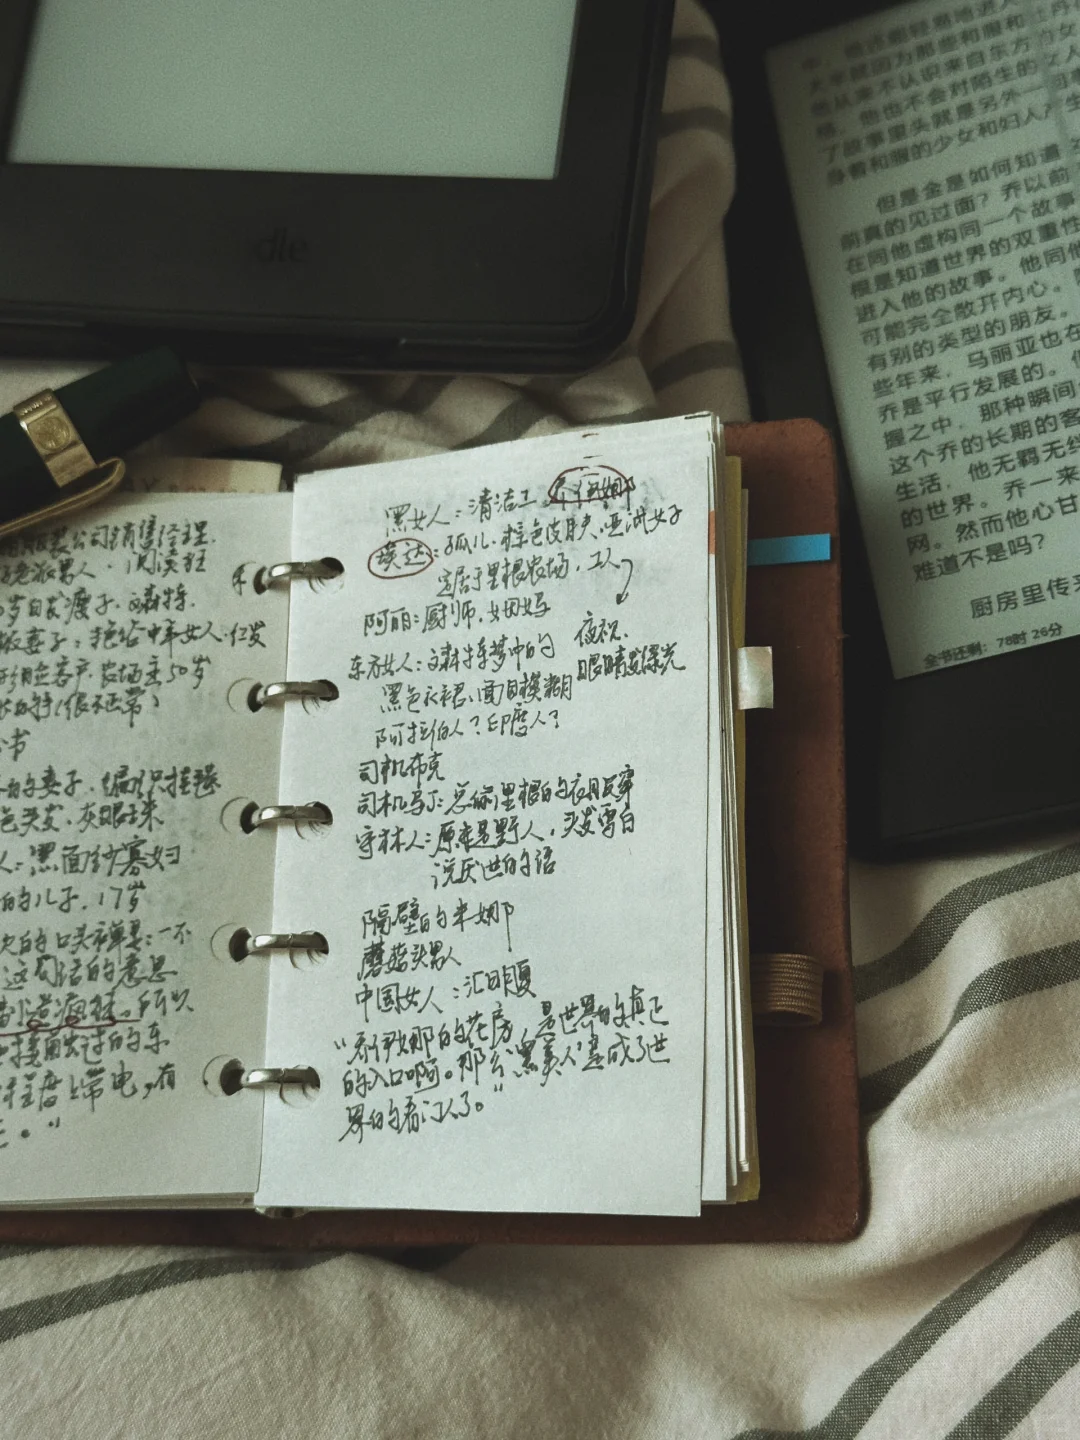 dle
大
他从来不认识来自东方的女
，他也不会对陌生的女人
了故事里头就是另外一回事
身着和服的少女和妇人产生
但是金是如何知道
前真的见过面？乔以前
在同他虚构同一个故事
根是知道世界的双重性
进入他的故事。他同他
可能完全敞开内心。
有别的类型的朋友。
些年来，马丽亚也在
乔是平行发展的。
握之中，那种瞬间
这个乔的长期的客
生活，他无羁无绊
的世界。乔一来
网。然而他心甘
难道不是吗？
厨房里传来
全书还剩：78时26分
服装公司销售经理.
男人．阅读狂
岁白发瘦子．文森特.
妻子：抱怨中年女人．
客户．农场主50岁
（很不正常）
书
的妻子．编织挂毯
色头发、灰眼珠
人：黑面纱寡妇
的儿子．17岁
的口头禅是：一不
这句话的意思
所以
接触过的东
程度上带电，有
。”
黑女人：清洁工 乔伊娜
埃达：孤儿．棕色皮肤、亚洲女子
定居于里根农场，工人
阿丽：厨师．女田妈
夜视．
东方女人：文森特梦中的
眼睛发绿光
黑色衣裙、面目模糊
阿拉伯人？印度人？
司机布克
司机马丁：总偷里根的衣服穿
守林人：原来是野人，头发雪白
说厌世的话
隔壁的米娜
蘑菇头男人
中国女人：汇明夏
“乔伊娜的花房，是世界的真正
的入口啊。那么‘黑美人’是成了世
界的看门人了。”